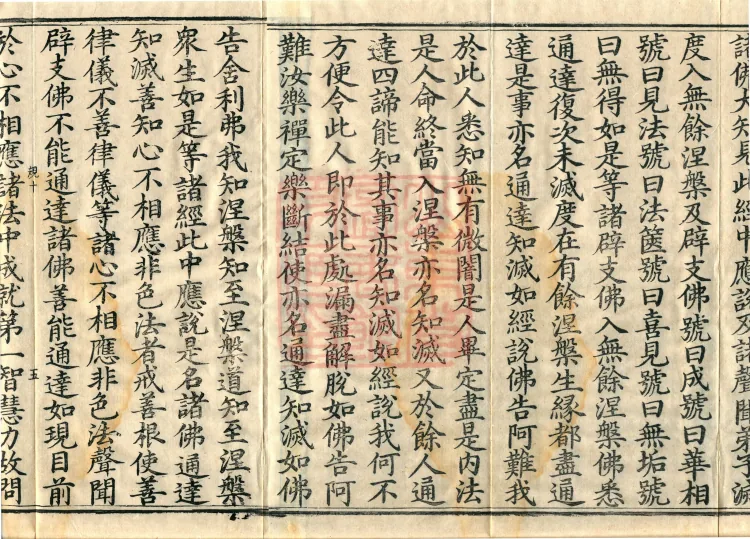 諸佛大知見此經中應說及諸聲聞弟子滅
度入無餘涅槃及辟支佛號曰成號曰華相
號曰見法號曰法篋號曰喜見號曰無垢號
曰無得如是等諸辟支佛入無餘涅槃佛悉
通達復次未滅度在有餘涅槃生緣都盡通
達是事亦名通達知滅如經說佛告阿難我
於此人悉知無有微闇是人畢定盡是內法
是人命終當入涅槃亦名知滅又於餘人通
達四諦能知其事亦名知滅如經說我何不
方便令此人即於此處漏盡解脫如佛告阿
難汝樂禪定樂斷結使亦名通達知滅如佛
告舍利弗我知涅槃知至涅槃道知至涅槃
眾生如是等諸經此中應說是名諸佛通達
知滅善知心不相應非色法者戒善根使善
律儀不善律儀等諸心不相應非色法聲聞
辟支佛不能通達諸佛善能通達如現目前
覞十 五
於心不相應諸法中成就第一智慧力故問